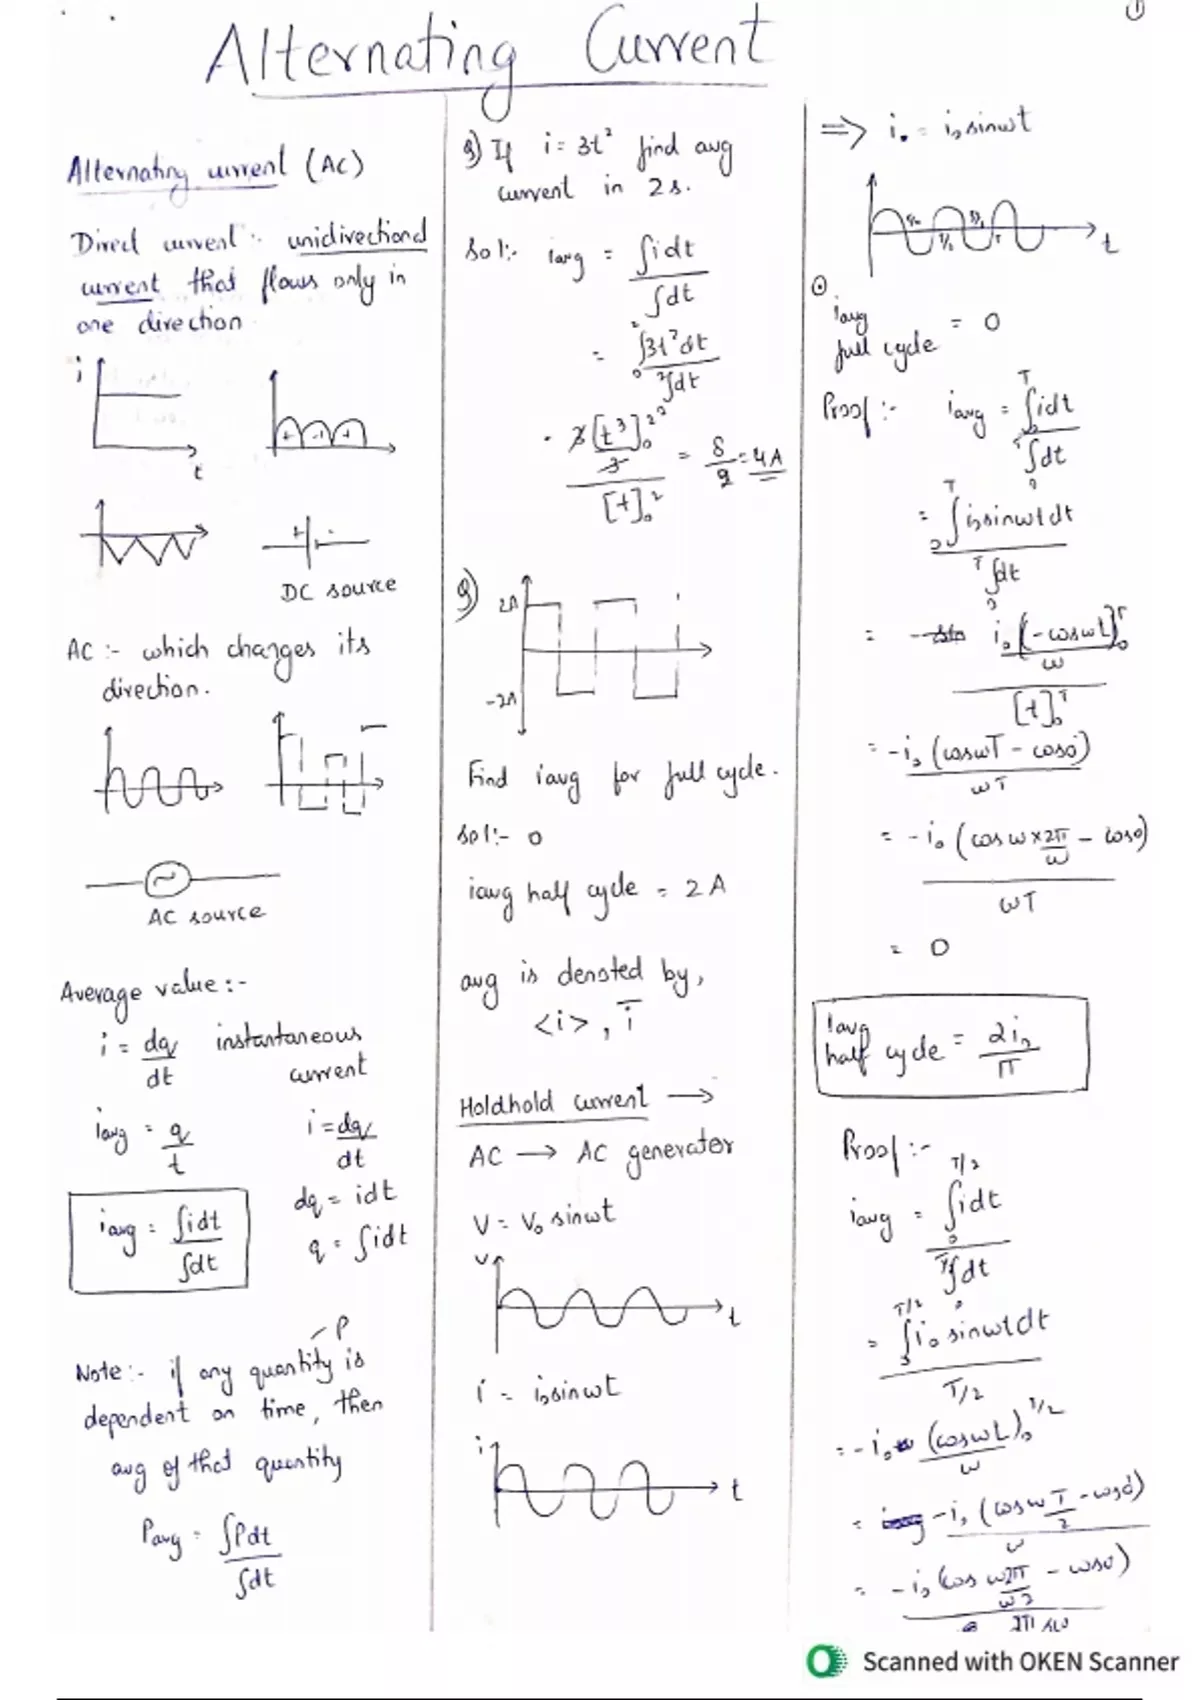 ①
Alternating Current
Alternating current (AC)
Direct current :- unidirectional
current that flows only in
one direction
i
t
+ - +
+ -
DC source
AC :- which changes its
direction.
AC source
Average value :-
i = dq/dt instantaneous
current
iavg = q/t
i = dq/dt
dq = idt
iavg = ∫idt/∫dt
q = ∫idt
Note :- if any quantity is - P
dependent on time, then
avg of that quantity
Pavg = ∫Pdt/∫dt
Q) If i = 3t² find avg
current in 2s.
Sol:- iavg = ∫idt/∫dt
= ∫₀² 3t²dt / ∫₀² dt
= 3[t³/3]₀² / [t]₀² = 8/2 = 4A
Q) 2A
-2A
Find iavg for full cycle.
Sol:- 0
iavg half cycle = 2A
avg is denoted by,
<i>, i̅
Holdhold current →
AC → AC generator
V = V₀ sinωt
V
t
i = i₀sinωt
i
t
⇒ i = i₀sinωt
T/2
T
t
iavg
full cycle = 0
Proof :- iavg = ∫₀ᵀ idt / ∫₀ᵀ dt
= ∫₀ᵀ i₀sinωtdt / ∫₀ᵀ dt
= i₀[-cosωt/ω]₀ᵀ / [t]₀ᵀ
= -i₀(cosωT - cos0) / ωT
= -i₀(cosω×2π/ω - cos0) / ωT
= 0
iavg
half cycle = 2i₀/π
Proof :-
iavg = ∫₀^T/2 idt / ∫₀^T/2 dt
= ∫₀^T/2 i₀ sinωtdt / T/2
= -i₀ (cosωt)₀^T/2 / ω
= -i₀ (cosωT/2 - cos0) / ω
= -i₀ (cos ω2π/ω2 - cos0)
Scanned with OKEN Scanner